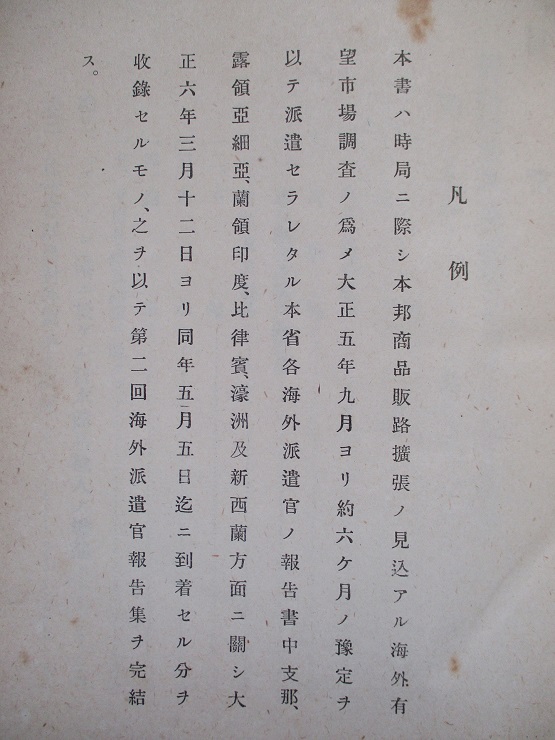 凡例
本書ハ時局ニ際シ本邦商品販路擴張ノ見込アル海外有
望市場調査ノ爲メ大正五年九月ヨリ約六ケ月ノ豫定ヲ
以テ派遣セラレタル本省各海外派遣官ノ報告書中支那、
露領亞細亞、蘭領印度、比律賓、濠洲及新西蘭方面ニ關シ大
正六年三月十二日ヨリ同年五月五日迄ニ到着セル分ヲ
收錄セルモノ、之ヲ以テ第二回海外派遣官報告集ヲ完結
ス。